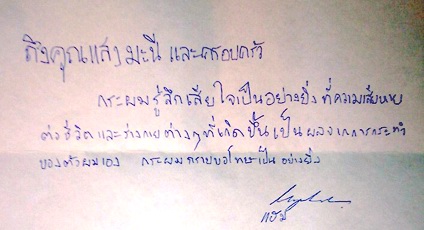 ถึงคุณแสงมะนี และครอบครัว
กระผมรู้สึกเสียใจเป็นอย่างยิ่ง ที่ความเสียหาย
ต่อชีวิต และร่างกายต่างๆที่เกิดขึ้นเป็นผลจากการกระทำ
ของตัวผมเอง กระผมกราบขอโทษเป็นอย่างยิ่ง
แฮม